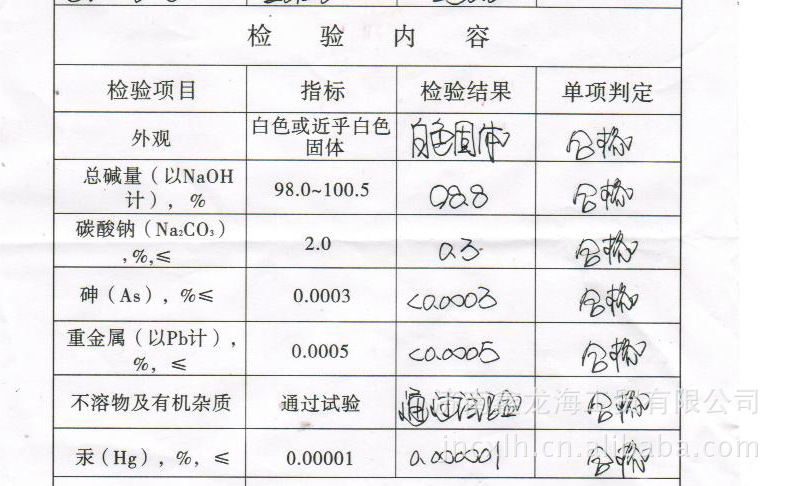 检 验 内 容
检验项目 指标 检验结果 单项判定
外观 白色或近乎白色固体 白色固体 合格
总碱量（以NaOH计），% 98.0~100.5 98.8 合格
碳酸钠（Na₂CO₃）,%,≤ 2.0 0.3 合格
砷（As），%≤ 0.0003 <0.0003 合格
重金属（以Pb计），%，≤ 0.0005 <0.0005 合格
不溶物及有机杂质 通过试验 通过试验 合格
汞（Hg），%，≤ 0.00001 0.000001 合格
龙海工贸有限公司
jnsxlh.cn.alibaba.com